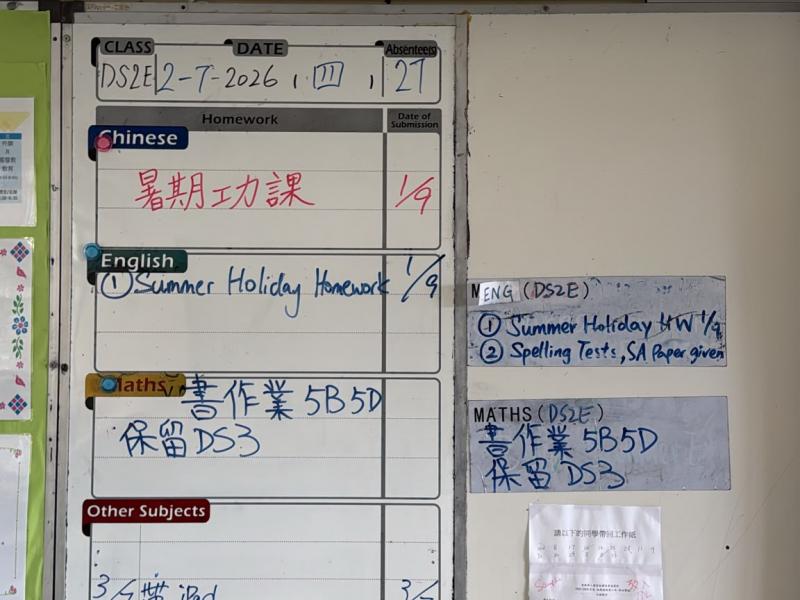 CLASS DATE Absentees
DS2E 2-7-2026, 四, 27
Homework Date of Submission
Chinese
暑期工力課 1/9
English
① Summer Holiday Homework 1/9
Maths
書作業 5B 5D
保留 DS3
Other Subjects
帶 iPad
ENG (DS2E)
① Summer Holiday HW 1/9
② Spelling Tests, SA Paper given
MATHS (DS2E)
書作業 5B 5D
保留 DS3
請以下的同學帶回工作紙